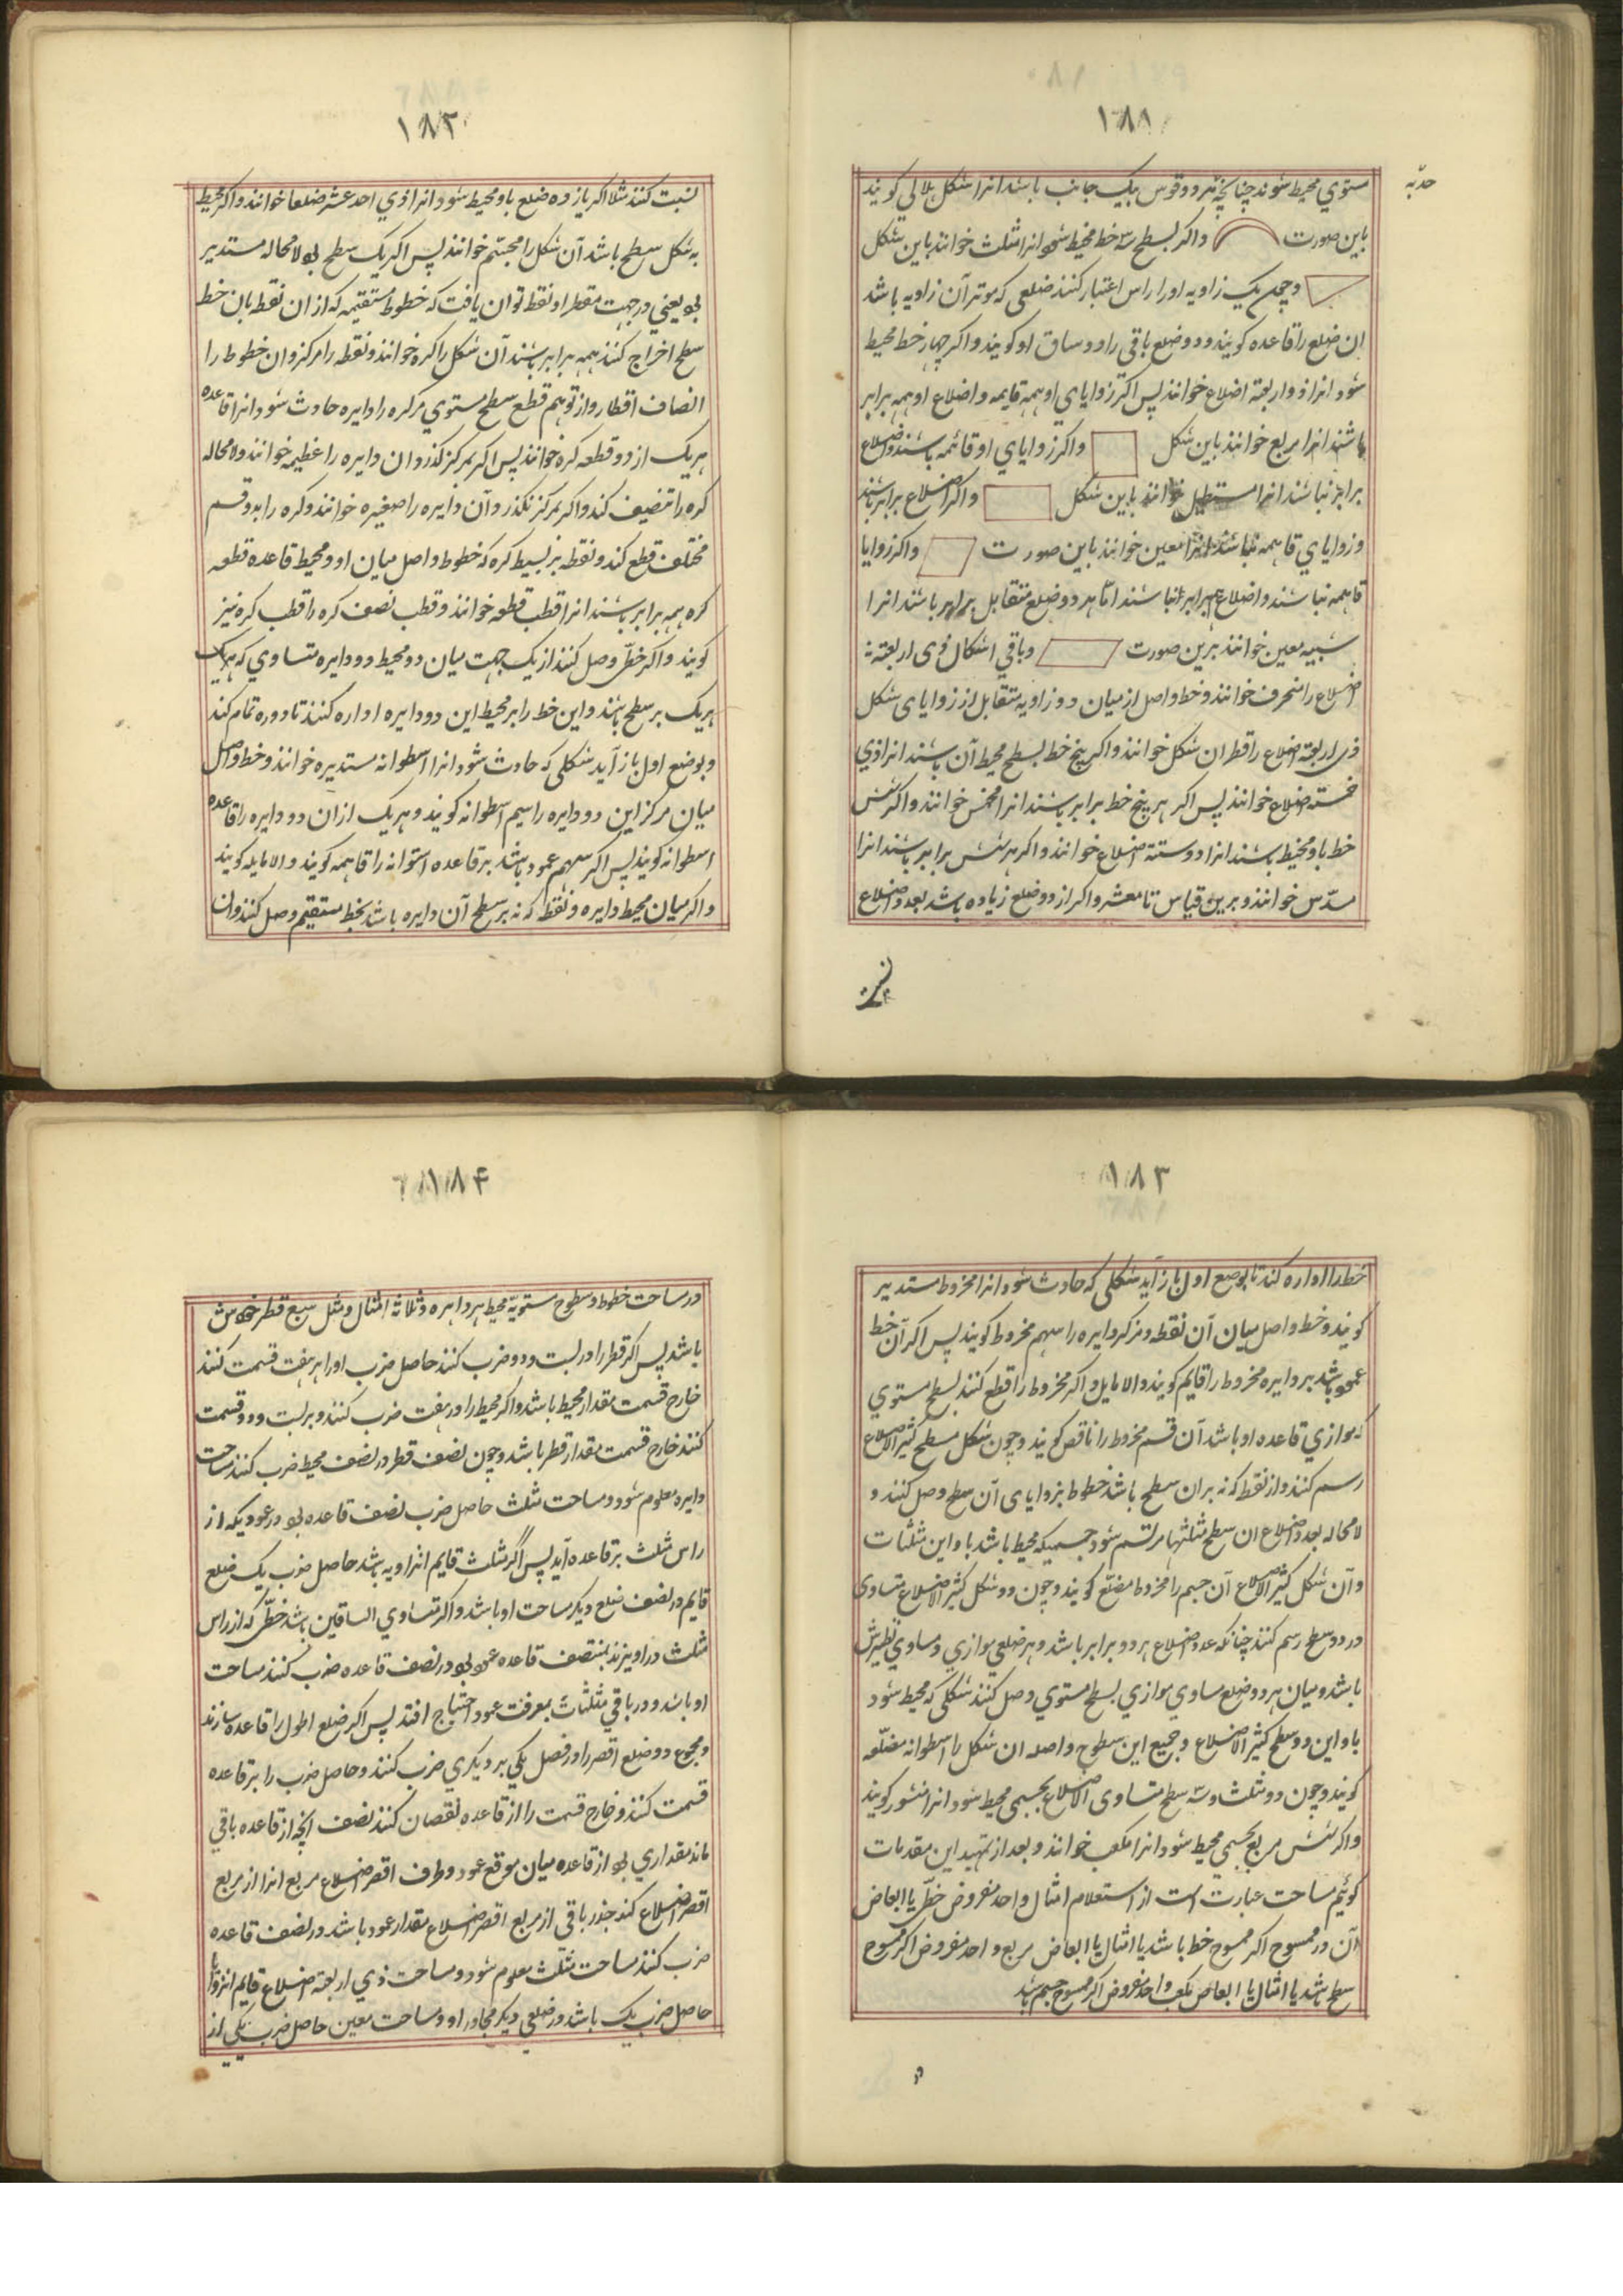 ۱۸۱
حدبه
مستوي محیط شوند چنانچه هر دو قوس بیک جانب باشد انرا شکل هلالی کویند
باین صورت واکر بسطح سه خط محیط شود انرا مثلث خوانند باین شکل
وچون یک زاویه اورا راس اعتبار کنند ضلعی که موتر آن زاویه باشد
ان ضلع را قاعده کویند ودو ضلع باقی را دو ساق او کویند واکر چهار خط محیط
شود انرا ذو اربعة اضلاع خوانند پس اکر زوایای او همه قایمه و اضلاع او همه برابر
باشند انرا مربع خوانند باین شکل واکر زوایاي او قائمه باشند واضلاع
برابر نباشند انرا مستطیل خوانند باین شکل واکر اضلاع برابر باشند
وزوایاي قایمه نباشند انرا معین خوانند باین صورت واکر زوایا
قایمه نباشند واضلاع همه برابر نباشند اما هر دو ضلع متقابل برابر باشند انرا
شبیه معین خوانند برین صورت وباقي اشکال ذی اربعته
اضلاع را منحرف خوانند وخط واصل از میان دو زاویه متقابل از زوایای شکل
ذی اربعة اضلاع را قطر ان شکل خوانند واکر پنج خط بسطح محیط آن باشند انرا ذي
خمسته اضلاع خوانند پس اکر هر پنج خط برابر باشند انرا مخمس خوانند واکر شش
خط باو محیط باشند انرا ذو ستته اضلاع خوانند واکر هر شش برابر باشند انرا
مسدس خوانند وبرین قیاس تا معشر واکر از ده ضلع زیاده باشد بعدد اضلاع
نسبت
۱۸۲
نسبت کنند مثلا اکر یازده ضلع باو محیط شود انرا ذي احد عشر ضلعا خوانند واکر محیط
به شکل سطح باشد آن شکل را مجسم خوانند پس اکر یک سطح بود لامحاله مستدیر
بود یعني در جهت مقعر او نقطه توان یافت که خطوط مستقیمه که از ان نقطه بان خط
سطح اخراج کنند همه برابر باشند آن شکل را کره خوانند ونقطه را مرکز وان خطوط را
انصاف اقطار واز توهم قطع سطح مستوي مر کره را دایره حادث شود انرا قاعده
هریک از دو قطعه کره خوانند پس اکر بمرکز کذرد ان دایره را عظیمه خوانند ولا محاله
کره را تنصیف کند واکر بمرکز نکذرد آن دایره را صغیره خوانند وکره را بدو قسم
مختلف قطع کند ونقطه بر بسیط کره که خطوط واصل میان او ومحیط قاعده قطعه
کره همه برابر باشند انرا قطب قطعه خوانند وقطب نصف کره را قطب کره نیز
کویند واکر خطی وصل کنند از یک جهت میان دو محیط دو دایره متساوي که
هریک بر سطح باشند واین خط را بر محیط این دو دایره اداره کنند تا دوره تمام کند
وبوضع اول باز آید شکلی که حادث شود انرا اسطوانه مستدیره خوانند وخط واصل
میان مرکز این دو دایره را سهم اسطوانه کویند و هریک ازان دو دایره را قاعده
اسطوانه کویند پس اکر سهم عمود باشد بر قاعده استوانه را قایمه کویند والا مایله کویند
واکر میان محیط دایره ونقطه که نه بر سطح آن دایره باشد بخط مستقیم وصل کنند وان
۱۸۳
خط را اداره کند تا بوضع اول باز آید شکلی که حادث شود انرا مخروط مستدیر
کویند وخط واصل میان آن نقطه ومرکز دایره را سهم مخروط کویند پس اکر آن خط
عمود باشد بر دایره مخروط را قایم کویند والا مایل واکر مخروط را قطع کنند بسطح مستوي
که موازي قاعده او باشد آن قسم مخروط را ناقص کویند وچون شکل مسطح کثیر الاضلاع
رسم کنند واز نقطه که نه بران سطح باشد خطوط بزوایای آن سطح وصل کنند و
لامحاله بعدد اضلاع ان سطح مثلثها مرتسم شود جسمیکه محیط باشد باو این مثلثات
وآن شکل کثیر الاضلاع آن جسم را مخروط مضلع کویند وچون دو شکل کثیر الاضلاع متساوی
در دو سطح رسم کنند چنانکه عدد اضلاع هر دو برابر باشد وهر ضلعي موازي ومساوي نظیرش
باشد ومیان هر دو ضلع مساوي موازي بسطح مستوي وصل کنند شکلی که محیط شود
باو این دو سطح کثیر الاضلاع وجمیع این سطوح واصله ان شکل را اسطوانه مضلعه
کویند وچون دو مثلث وسه سطح متساوی الاضلاع بجسمی محیط شود انرا منشور کویند
واکر شش مربع بجسمی محیط شود انرا مکعب خوانند وبعد از تمهید این مقدمات
کوئیم مساحت عبارت است از استعلام امثال واحد مفروض خطی یا ابعاض
آن در ممسوح اکر ممسوح خط باشد یا امثال یا ابعاض مربع واحد مفروض اکر ممسوح
سطح باشد یا امثال یا ابعاض مکعب واحد مفروض اکر ممسوح جسم باشد
۱۸۴
در مساحت خطوط وسطوح مستویه محیط هر دایره وثلاثة امثال ومثل سبع قطر خودش
باشد پس اکر قطر را در بست ودو ضرب کنند حاصل ضرب اورا بر هفت قسمت کنند
خارج قسمت مقدار محیط باشد واکر محیط را در هفت ضرب کنند وبر بست ودو قسمت
کنند خارج قسمت مقدار قطر باشد وچون نصف قطر در نصف محیط ضرب کنند مساحت
دایره معلوم شود ومساحت مثلث حاصل ضرب نصف قاعده بود در عمودیکه از
راس مثلث بر قاعده آید پس اگر مثلث قایم الزاویه باشد حاصل ضرب یک ضلع
قایم در نصف ضلع دیکر مساحت او باشد واکر متساوي الساقین باشد خطی که از راس
مثلث در اویزند بمنتصف قاعده عمود بود در نصف قاعده ضرب کنند مساحت
او باشد ودر باقي مثلثات بمعرفت عمود احتیاج افتد پس اکر ضلع اطول را قاعده سازند
ومجموع دو ضلع اقصر را در فصل یکي بر دیکري ضرب کنند وحاصل ضرب را بر قاعده
قسمت کنند وخارج قسمت را از قاعده نقصان کنند نصف انچه از قاعده باقي
ماند مقداري بود از قاعده میان موقع عمود وطرف اقصر اضلاع مربع انرا از مربع
اقصر اضلاع کنند جذر باقی از مربع اقصر اضلاع مقدار عمود باشد در نصف قاعده
ضرب کنند مساحت مثلث معلوم شود ومساحت ذي اربعته اضلاع قایم الزوایا
حاصل ضرب یک باشد در ضلعي دیکر مجاور او ومساحت معین حاصل ضرب یکی از